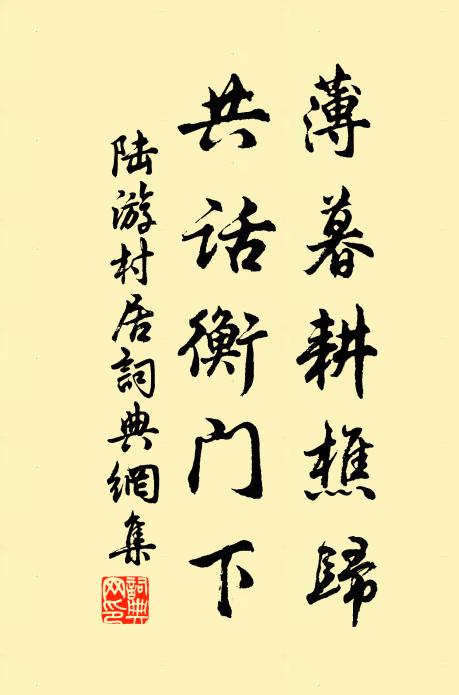 薄暮耕樵歸
共话衡门下
陆游村居詞典網集
詞典網印